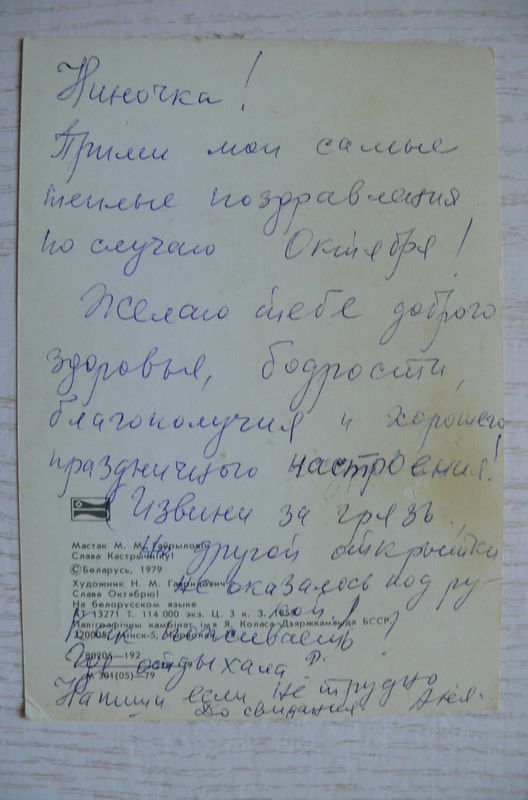 Ниночка!
Прими мои самые
теплые поздравления
по случаю Октября!
Желаю тебе доброго
здоровья, бодрости,
благополучия и хорошего
праздничного настроения!
Извини за грязь,
Мастак М. М.
Слава Кастрычніку!
но другой открытки
©Беларусь, 1979
Художник Н. М.
не оказалось под ру-
Слава Октябрю!
На белорусском языке
кой!
АТ 13271 Т. 114 000 экз. Ц. 3 к. З.
Паліграфічны камбінат імя Я. Коласа Дзяржкамвыда БССР
Как поживаешь?
220005, Мінск-5,
80205—192
Где отдыхала?
М 301(05)—79
Напиши если не трудно
До свидания Аня.